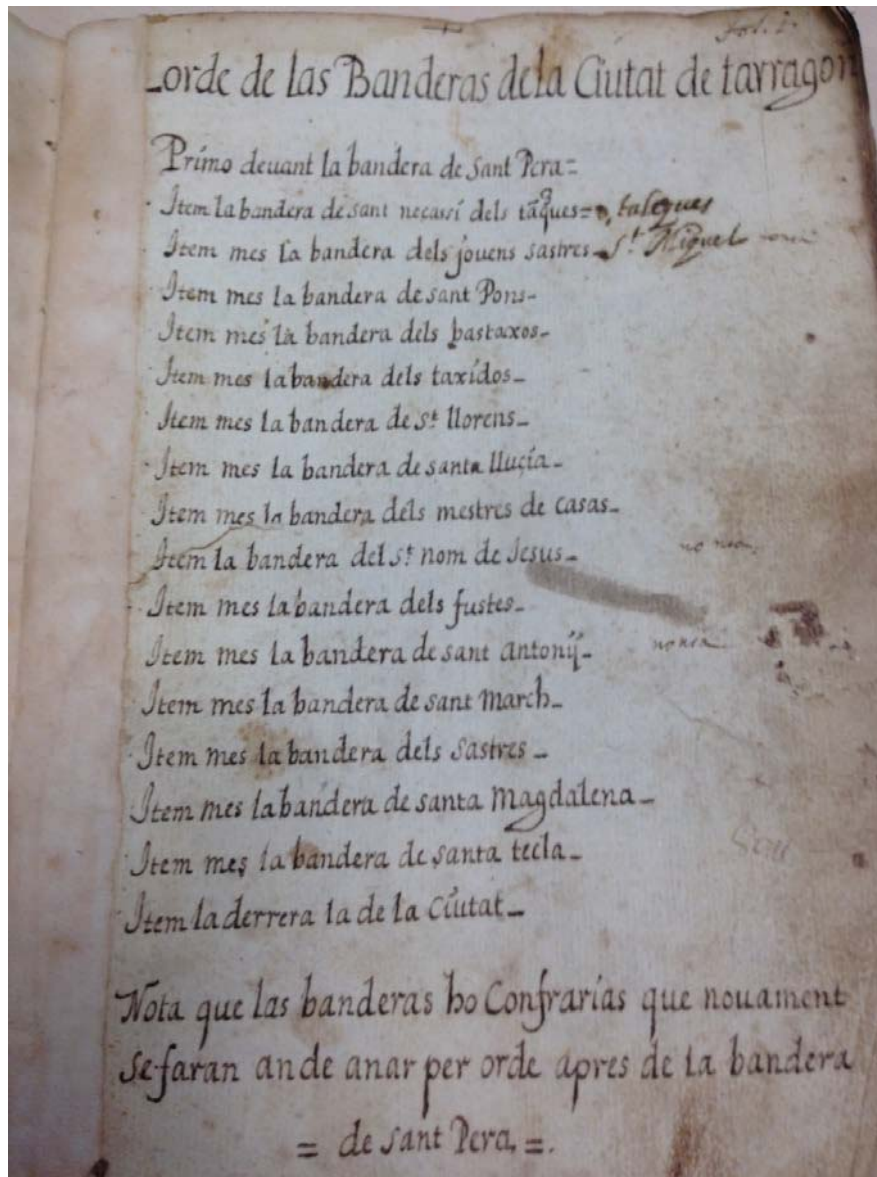 fol. 1.
Lorde de las Banderas dela Ciutat de tarragon
Primo deuant la bandera de sant Pera=
Item la bandera de sant necassí dels taques= o, talegues
Item mes la bandera dels jouens sastres- St Miquel
Item mes la bandera de sant Pons-
Item mes la bandera dels bastaxos-
Item mes la bandera dels taxidos-
Item mes la bandera de St llorens-
Item mes la bandera de santa llucía-
Item mes la bandera dels mestres de casas-
Item la bandera del St nom de Jesus-
Item mes la bandera dels fustes-
Item mes la bandera de sant antonÿ-
Item mes la bandera de sant March-
Item mes la bandera dels Sastres-
Item mes la bandera de santa Magdalena-
Item mes la bandera de santa tecla-
Item la derrera la de la Ciutat-
Nota que las banderas ho Confrarías que nouament
se faran an de anar per orde apres de la bandera
= de sant Pera, =.